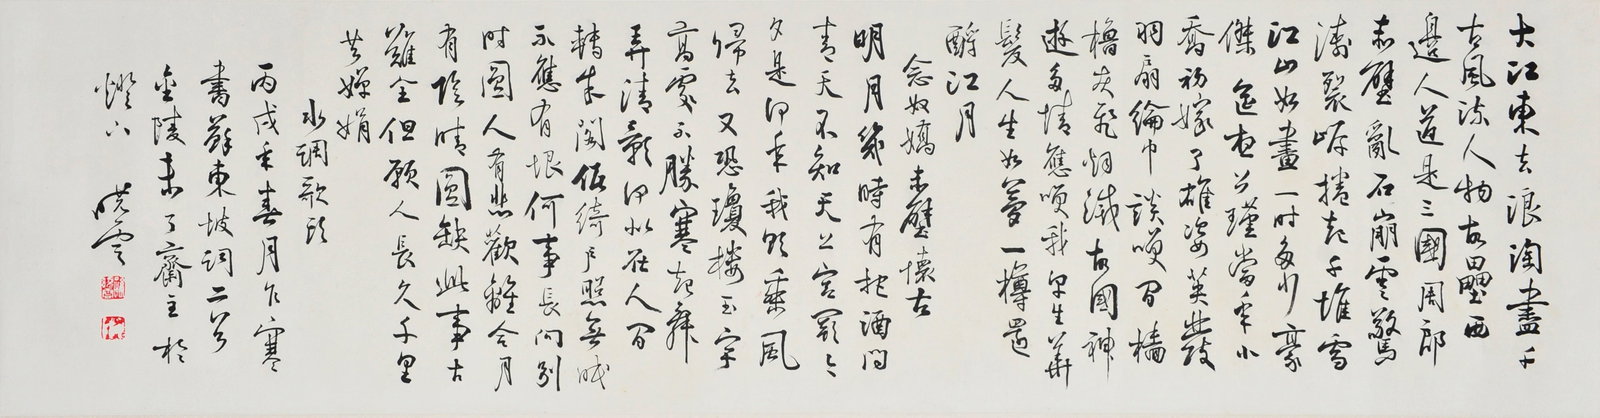 大江東去浪淘盡千
古風流人物故壘西
邊人道是三國周郎
赤壁亂石崩雲驚
濤裂岸捲起千堆雪
江山如畫一時多少豪
傑遙想公瑾當年小
喬初嫁了雄姿英發
羽扇綸巾談笑間檣
櫓灰飛煙滅故國神
遊多情應笑我早生華
髮人生如夢一樽還
酹江月
念奴嬌赤壁懷古
明月幾時有把酒問
青天不知天上宮闕今
夕是何年我欲乘風
歸去又恐瓊樓玉宇
高處不勝寒起舞
弄清影何似在人間
轉朱閣低綺戶照無眠
不應有恨何事長向別
時圓人有悲歡離合月
有陰晴圓缺此事古
難全但願人長久千里
共嬋娟
水調歌頭
丙戌年春月乍寒
書蘇東坡詞二首
金陵未了齋主於
燈下 曉雲